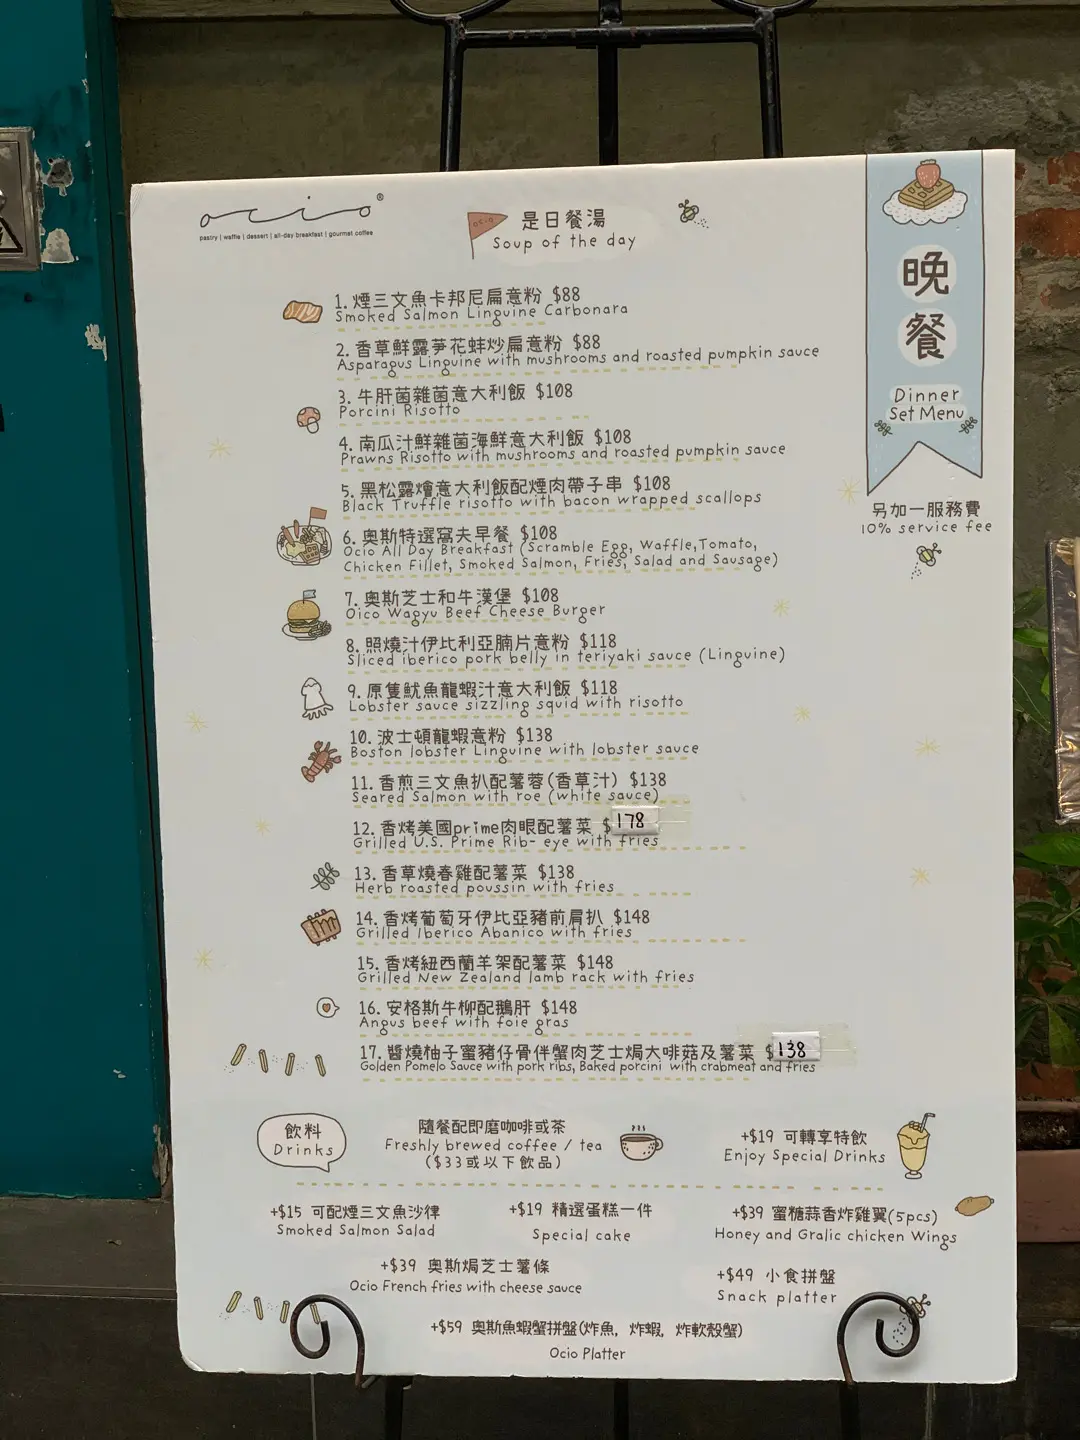 ocio®
pastry | waffle | dessert | all-day breakfast | gourmet coffee
ocio
是日餐湯
Soup of the day
晚餐
Dinner
Set Menu
另加一服務費
10% service fee
1. 煙三文魚卡邦尼扁意粉 $88
Smoked Salmon Linguine Carbonara
2. 香草鮮露笋花蚌炒扁意粉 $88
Asparagus Linguine with mushrooms and roasted pumpkin sauce
3. 牛肝菌雜菌意大利飯 $108
Porcini Risotto
4. 南瓜汁鮮雜菌海鮮意大利飯 $108
Prawns Risotto with mushrooms and roasted pumpkin sauce
5. 黑松露燴意大利飯配煙肉帶子串 $108
Black Truffle risotto with bacon wrapped scallops
6. 奧斯特選窩夫早餐 $108
Ocio All Day Breakfast (Scramble Egg, Waffle,Tomato,
Chicken Fillet, Smoked Salmon, Fries, Salad and Sausage)
7. 奧斯芝士和牛漢堡 $108
Oico Wagyu Beef Cheese Burger
8. 照燒汁伊比利亞腩片意粉 $118
Sliced iberico pork belly in teriyaki sauce (Linguine)
9. 原隻魷魚龍蝦汁意大利飯 $118
Lobster sauce sizzling squid with risotto
10. 波士頓龍蝦意粉 $138
Boston lobster Linguine with lobster sauce
11. 香煎三文魚扒配薯蓉(香草汁) $138
Seared Salmon with roe (white sauce)
12. 香烤美國prime肉眼配薯菜 $178
Grilled U.S. Prime Rib- eye with fries
13. 香草燒春雞配薯菜 $138
Herb roasted poussin with fries
14. 香烤葡萄牙伊比亞豬前肩扒 $148
Grilled Iberico Abanico with fries
15. 香烤紐西蘭羊架配薯菜 $148
Grilled New Zealand lamb rack with fries
16. 安格斯牛柳配鵝肝 $148
Angus beef with foie gras
17. 醬燒柚子蜜豬仔骨伴蟹肉芝士焗大啡菇及薯菜 $138
Golden Pomelo Sauce with pork ribs, Baked porcini with crabmeat and fries
飲料
Drinks
隨餐配即磨咖啡或茶
Freshly brewed coffee / tea
($33或以下飲品)
+$19 可轉享特飲
Enjoy Special Drinks
+$15 可配煙三文魚沙律
Smoked Salmon Salad
+$19 精選蛋糕一件
Special cake
+$39 蜜糖蒜香炸雞翼(5pcs)
Honey and Gralic chicken Wings
+$39 奧斯焗芝士薯條
Ocio French fries with cheese sauce
+$49 小食拼盤
Snack platter
+$59 奧斯魚蝦蟹拼盤(炸魚, 炸蝦, 炸軟殼蟹)
Ocio Platter